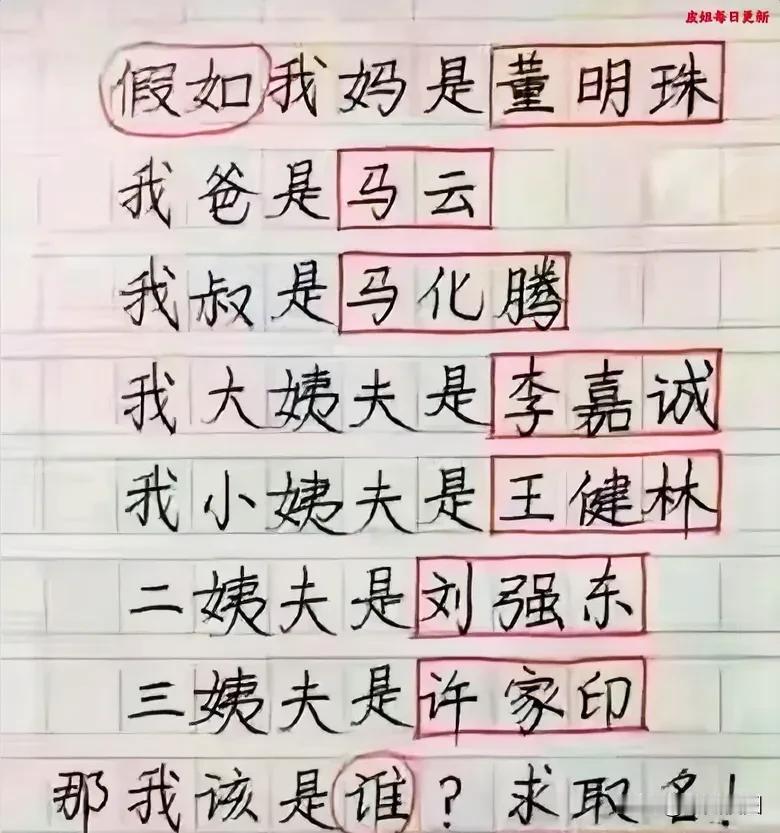 皮姐每日更新
假如我妈是董明珠
我爸是马云
我叔是马化腾
我大姨夫是李嘉诚
我小姨夫是王健林
二姨夫是刘强东
三姨夫是许家印
那我该是谁？求取名！